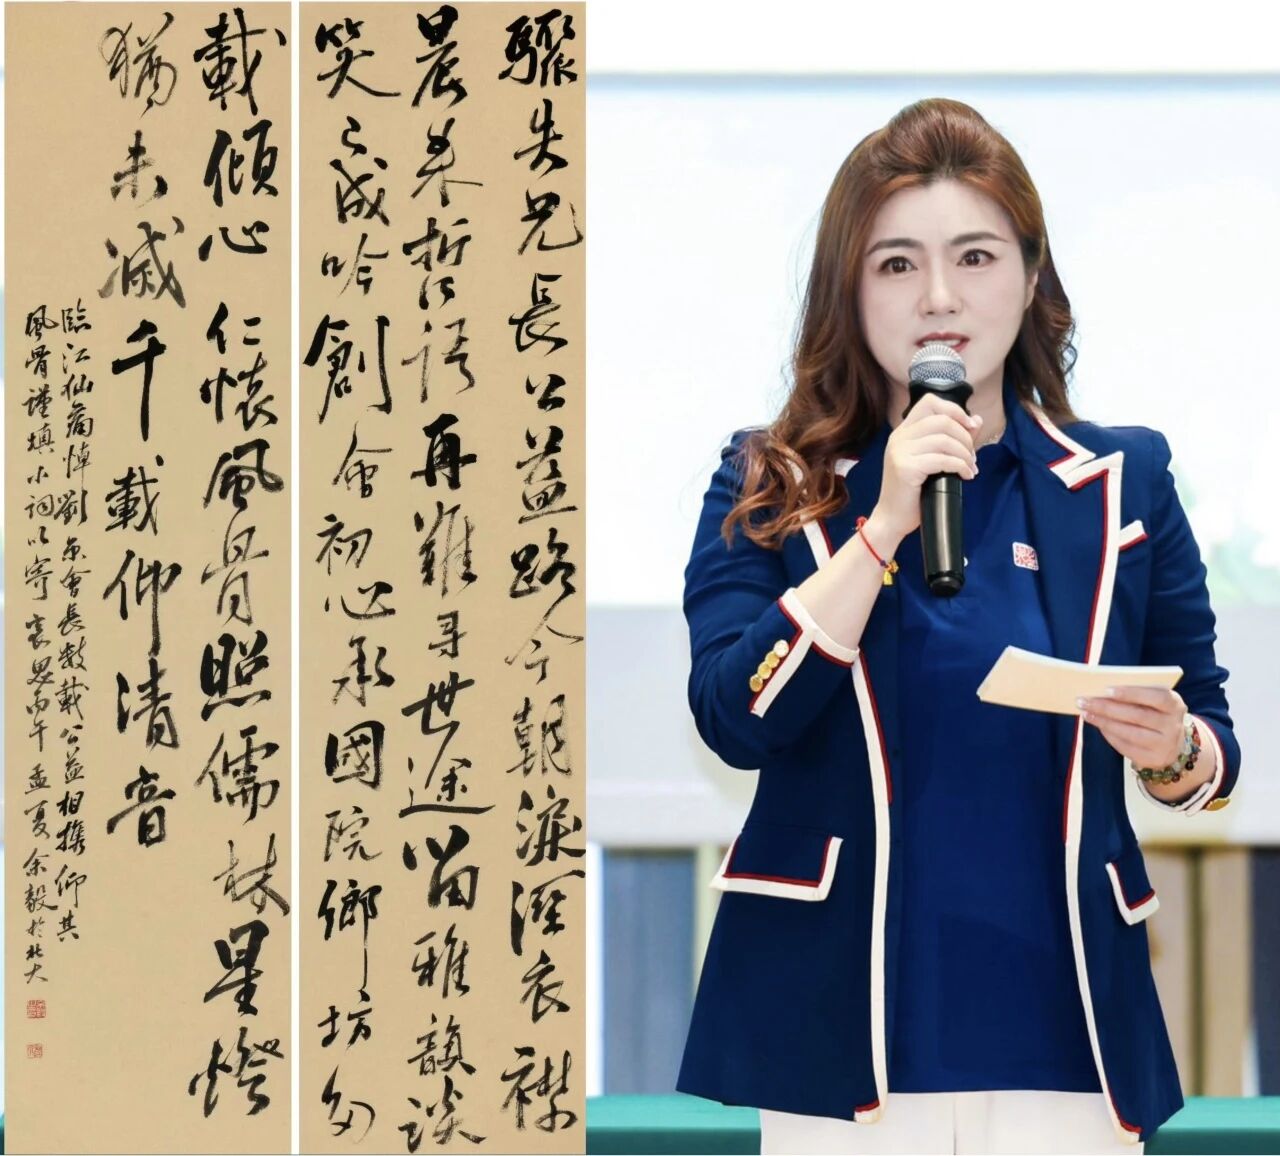 驟失兄長公益路今朝淚溼衣襟
晨来哲語再難尋世途留雅韻談
笑已成吟創會初心承國院鄉坊多
載傾心仁懷風骨照儒林星燈
猶未滅千載仰清音
臨江仙痛悼劉京會長數載公益相攜仰其
風骨謹填小詞以寄哀思丙午孟夏余毅於北大